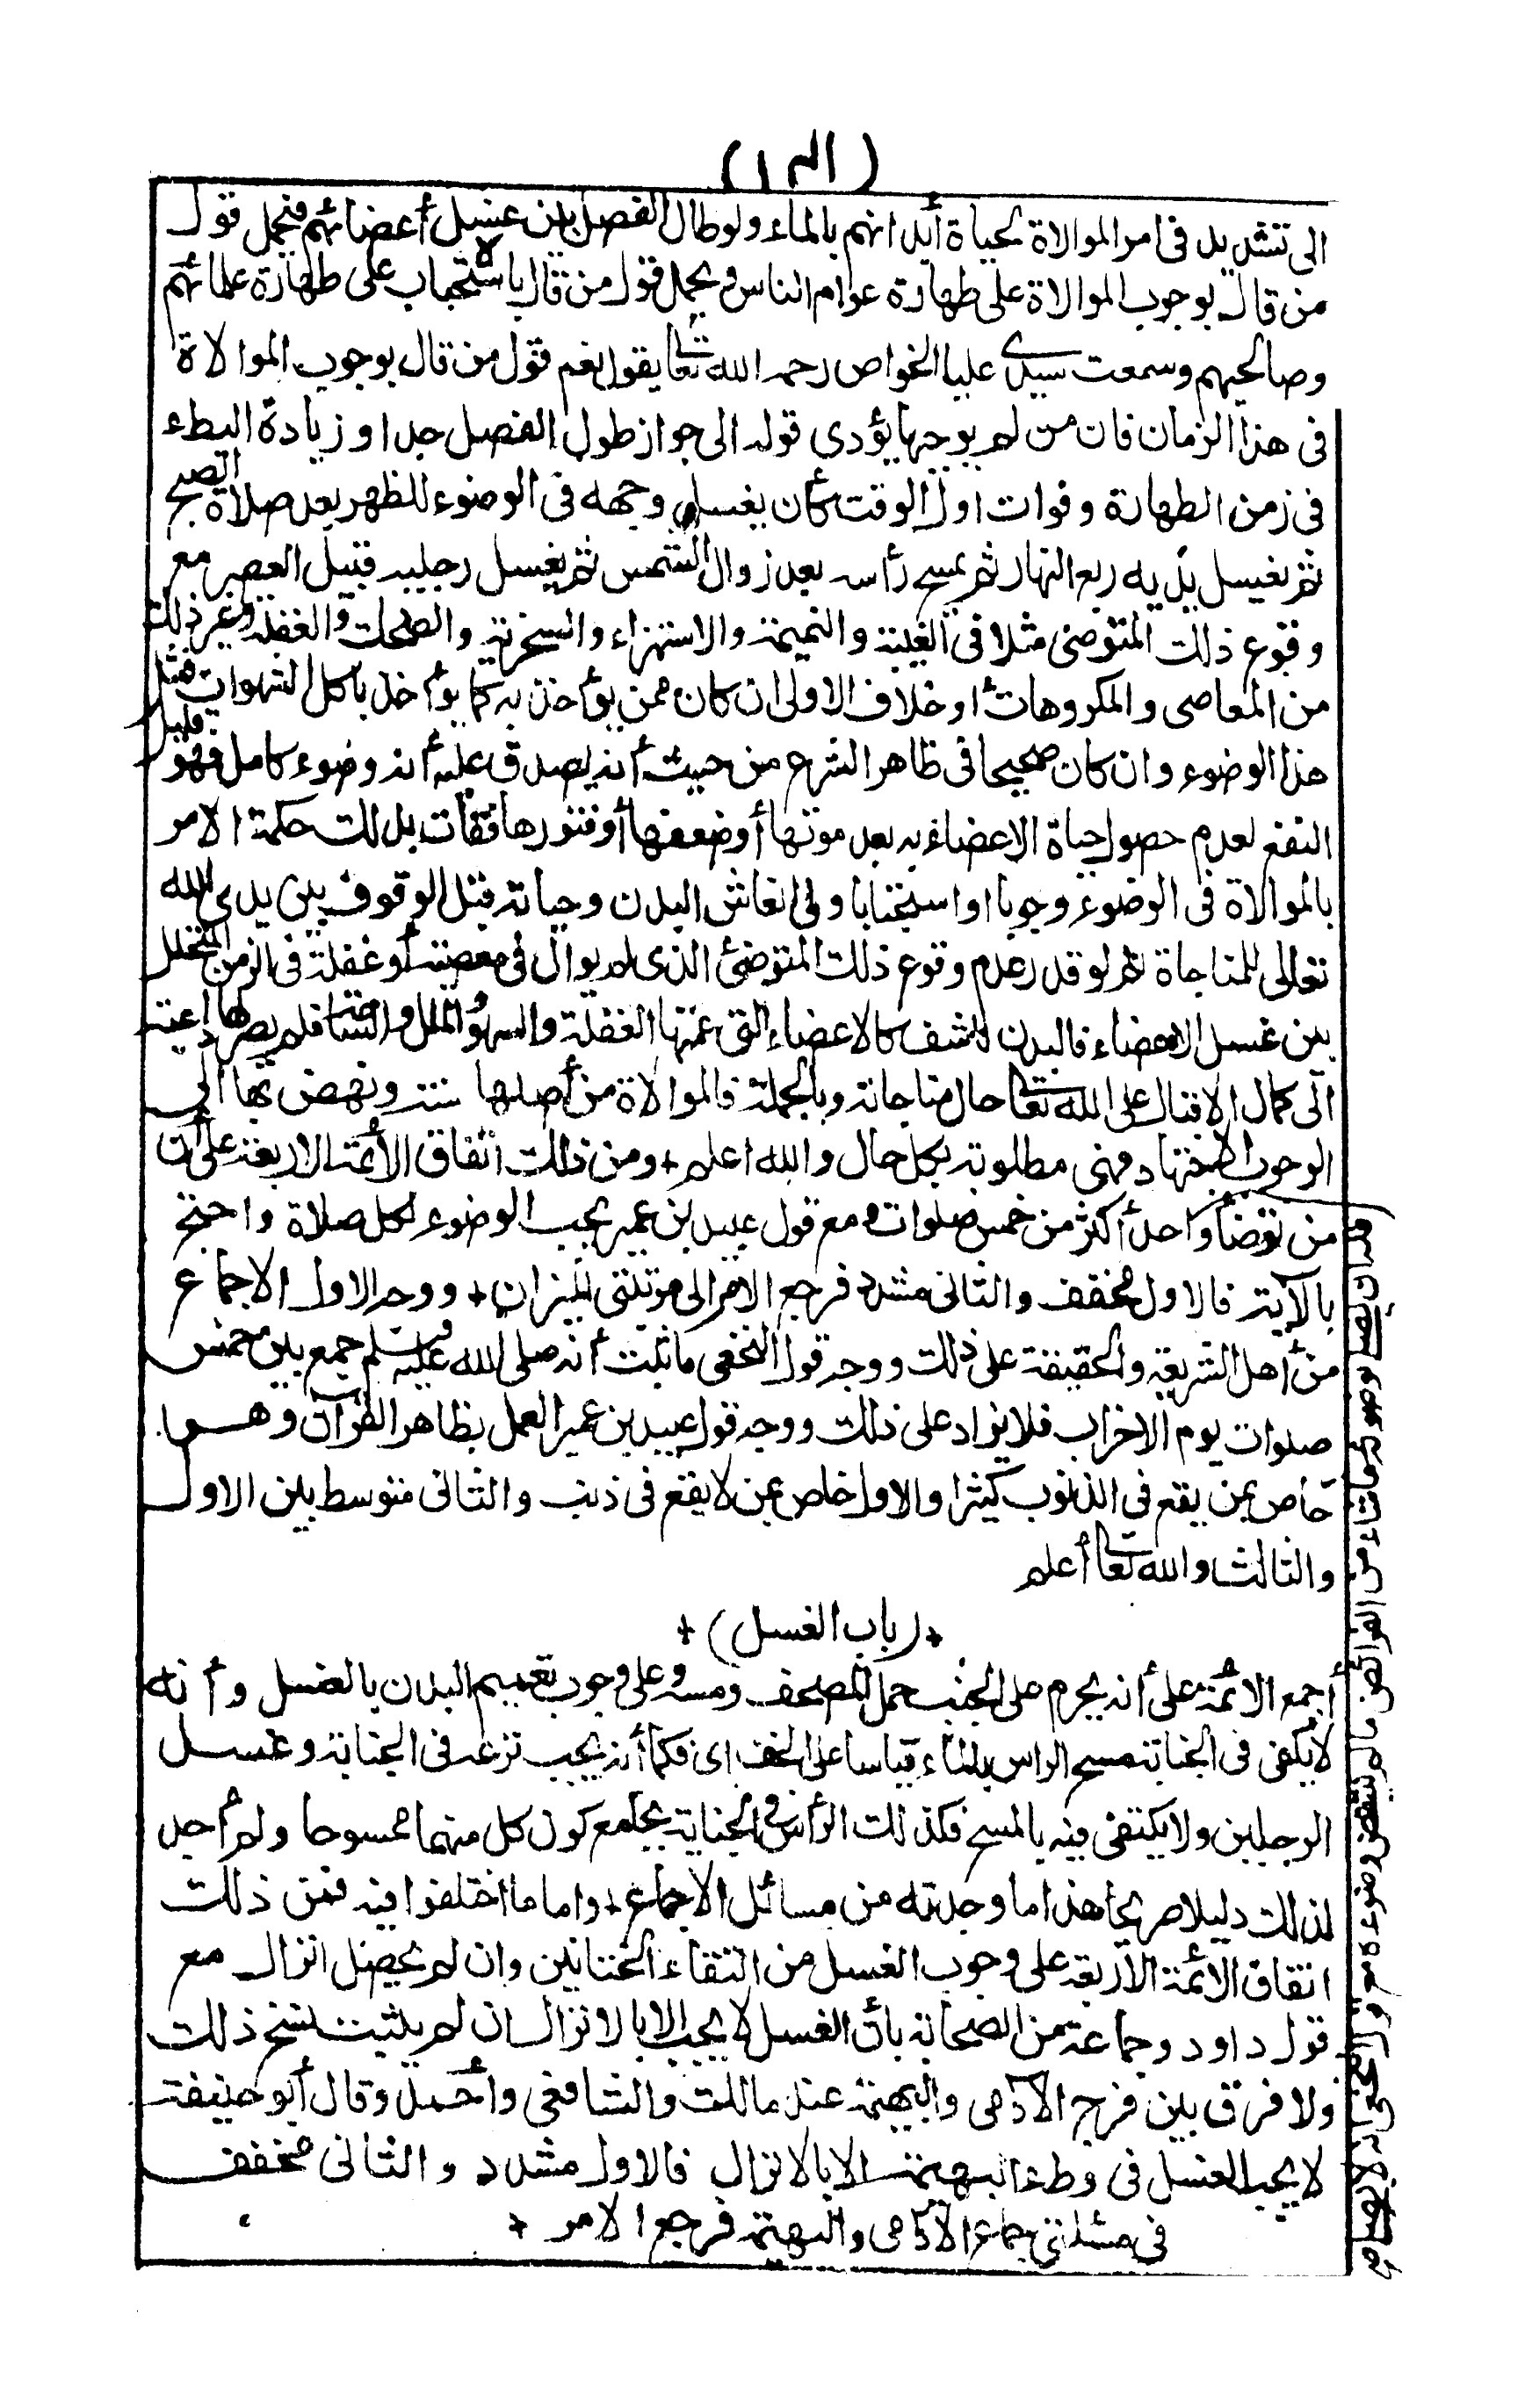 الى تشديد فى امر الموالاة لحياة أبدانهم بالماء ولو طال الفصل بين غسل أعضائهم فيحمل قول
من قال بوجوب الموالاة على طهارة عوام الناس ويحمل قول من قال بالاستحباب على طهارة علمائهم
وصالحيهم وسمعت سيدى عليا الخواص رحمه الله تعالى يقول نعم قول من قال بوجوب الموالاة
فى هذا الزمان فان من لم يوجبها يؤدى قوله الى جواز طول الفصل جدا وزيادة البطء
فى زمن الطهارة وفوات اول الوقت كأن يغسل وجهه فى الوضوء للظهر بعد صلاة الصبح
ثم يغسل يديه ربع النهار ثم يمسح رأسه بعد زوال الشمس ثم يغسل رجليه قبيل العصر مع
وقوع ذلك المتوضئ مثلا فى الغيبة والنميمة والاستهزاء والسخرية والضحك والغفلة وغير ذلك
من المعاصى والمكروهات أو خلاف الاولى ان كان ممن يؤاخذ به كما يؤاخذ بأكل الشهوات فمثل
هذا الوضوء وان كان صحيحا فى ظاهر الشرع من حيث أنه يصدق عليه أنه وضوء كامل فهو قليل
النفع لعدم حصول حياة الاعضاء به بعد موتها أو ضعفها أو فتورها ففات بذلك حكمة الامر
بالموالاة فى الوضوء وجوبا او استحبابا وهى انعاش البدن وحياته قبل الوقوف بين يدى الله
تعالى للمناجاة ثم لو قدر عدم وقوع ذلك المتوضئ الذى لم يوال فى معصية أو غفلة فى الزمن المتخلل
بين غسل الاعضاء فالبدن ناشف كالاعضاء التى عمتها الغفلة والسهو والملل والسآمة فلم يصر لها داعية
الى كمال الاقبال على الله تعالى حال مناجاته وبالجملة فالموالاة من أصلها سنة ونهض بها الى
الوجوب الاجتهاد فهى مطلوبة بكل حال والله اعلم + ومن ذلك اتفاق الأئمة الاربعة على أن
من توضأ فله أن يصلى بوضوئه ما شاء من الفرائض ما لم ينتقض وضوءه مع قول النخعى لا يصلى بوضوء
واحد أكثر من خمس صلوات ومع قول عبيد بن عمير يجب الوضوء لكل صلاة واحتج
بالآية فالاول مخفف والثانى مشدد فرجع الامر الى مرتبتى الميزان + ووجه الاول الاجماع
من أهل الشريعة والحقيقة على ذلك ووجه قول النخعى ما ثبت أنه صلى الله عليه وسلم جمع بين خمس
صلوات يوم الاحزاب فلا يزاد على ذلك ووجه قول عبيد بن عمير العمل بظاهر القرآن وهو
خاص بمن يقع فى الذنوب كثيرا والاول خاص بمن لا يقع فى ذنب والثانى متوسط بين الاول
والثالث والله تعالى أعلم
+ (باب الغسل) +
أجمع الائمة على أنه يحرم على الجنب حمل المصحف ومسه وعلى وجوب تعميم البدن بالغسل وأنه
لا يكفى فى الجنابة مسح الراس بالماء قياسا على الخف اى فكما أنه يجب نزعه فى الجنابة وغسل
الرجلين ولا يكتفى فيه بالمسح فكذلك الرأس فى الجنابة بجامع كون كل منهما ممسوحا ولم أجد
لذلك دليلا صريحا هذا ما وجدته من مسائل الاجماع + واما ما اختلفوا فيه فمن ذلك
اتفاق الائمة الاربعة على وجوب الغسل من التقاء الختانين وان لم يحصل انزال مع
قول داود وجماعة من الصحابة بأن الغسل لا يجب الا بالانزال ان لم يثبت نسخ ذلك
ولا فرق بين فرج الآدمى والبهيمة عند مالك والشافعى وأحمد وقال أبو حنيفة
لا يجب الغسل فى وطء البهيمة الا بالانزال فالاول مشدد والثانى مخفف
فى مسئلتى جماع الآدمى والبهيمة فرجع الامر +